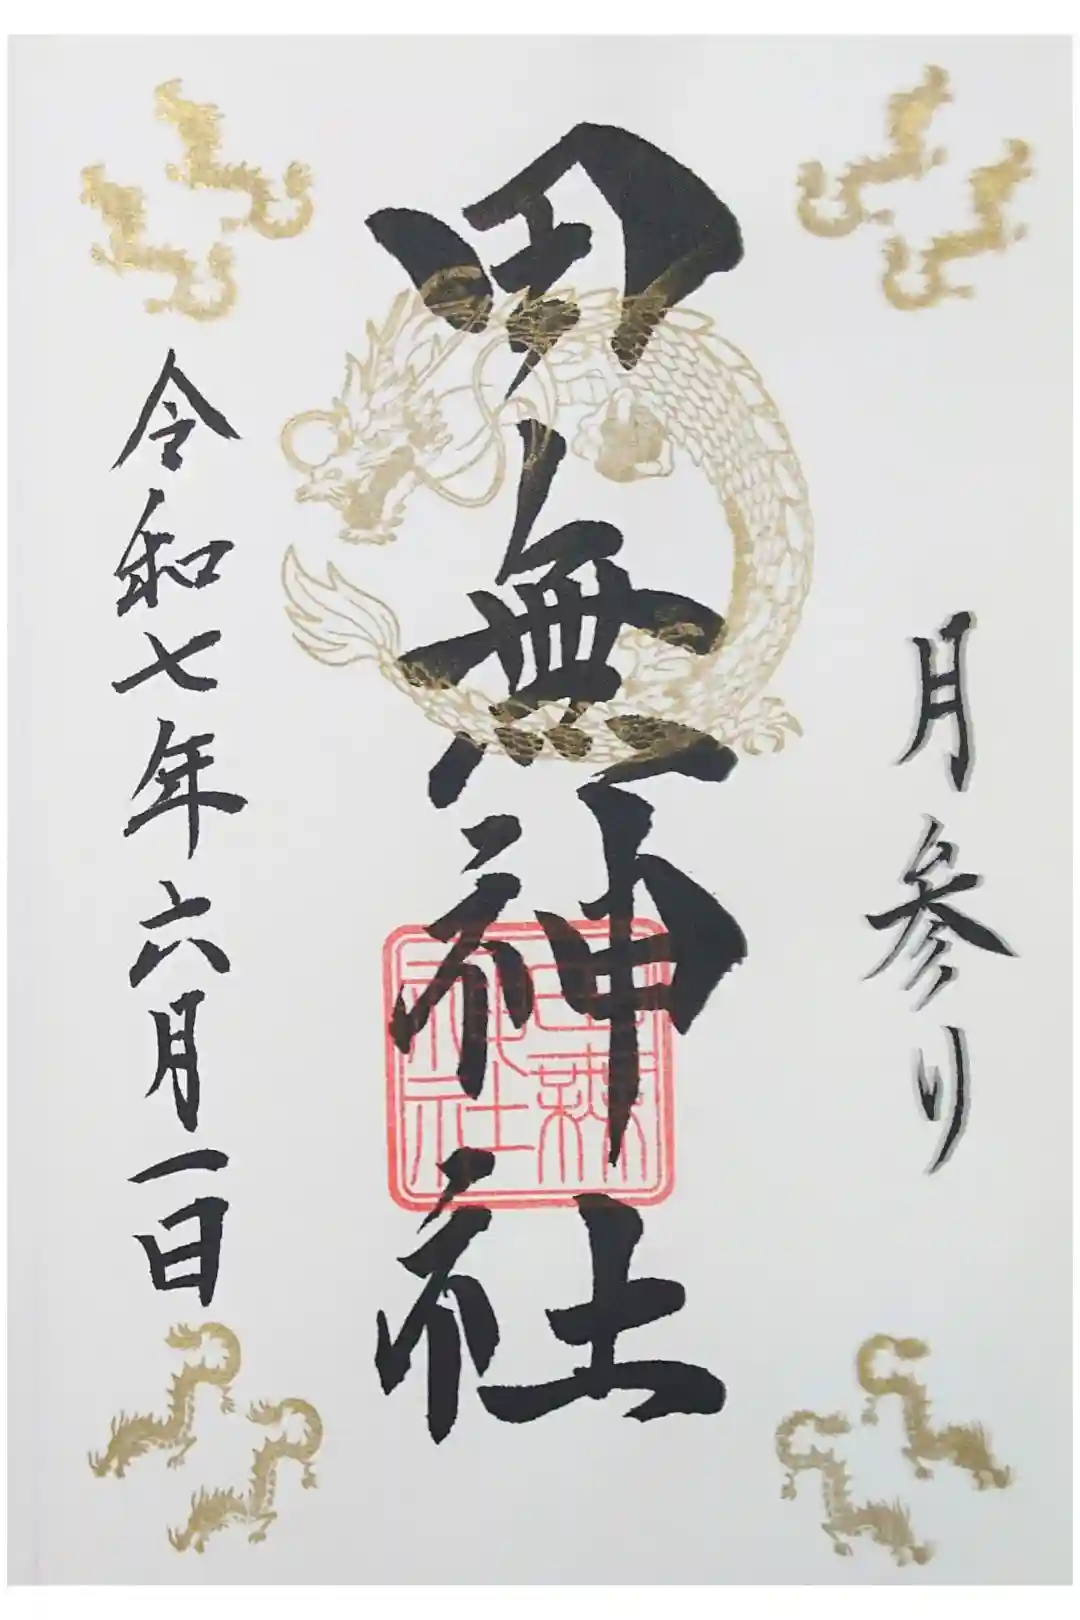 月参り
田無神社
田無
神社
令和七年六月一日